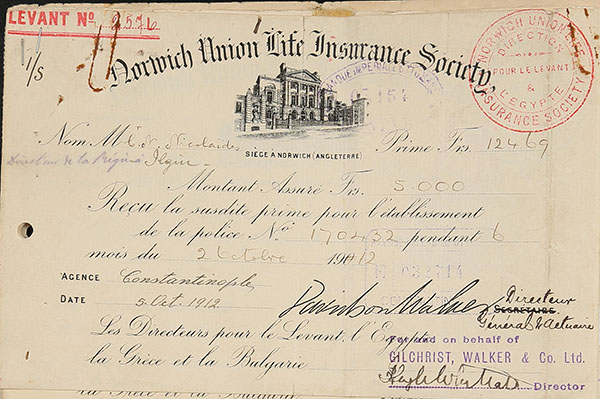 LEVANT Nº 2576
1/S
Norwich Union Life Insurance Society,
NORWICH UNION LIFE INSURANCE SOCIETY
DIRECTION
POUR LE LEVANT
&
L'EGYPTE
SIÈGE A NORWICH (ANGLETERRE)
Nom M C. N. Prime Frs. 124 69
Directeur de la Régie à Ilgin
Montant Assuré Frs. 5.000
Reçu la susdite prime pour l'établissement
de la police Nº 1704432 pendant 6
mois du 2 Octobre 1912
AGENCE Constantinople
DATE 5 Oct. 1912
Davidson Walker Directeur
SECRETAIRE
Général & Actuaire
Les Directeurs pour le Levant, l'Egypte
la Grèce et la Bulgarie
For and on behalf of
GILCHRIST, WALKER & Co. Ltd.
Director
la Grèce et la Bulgarie